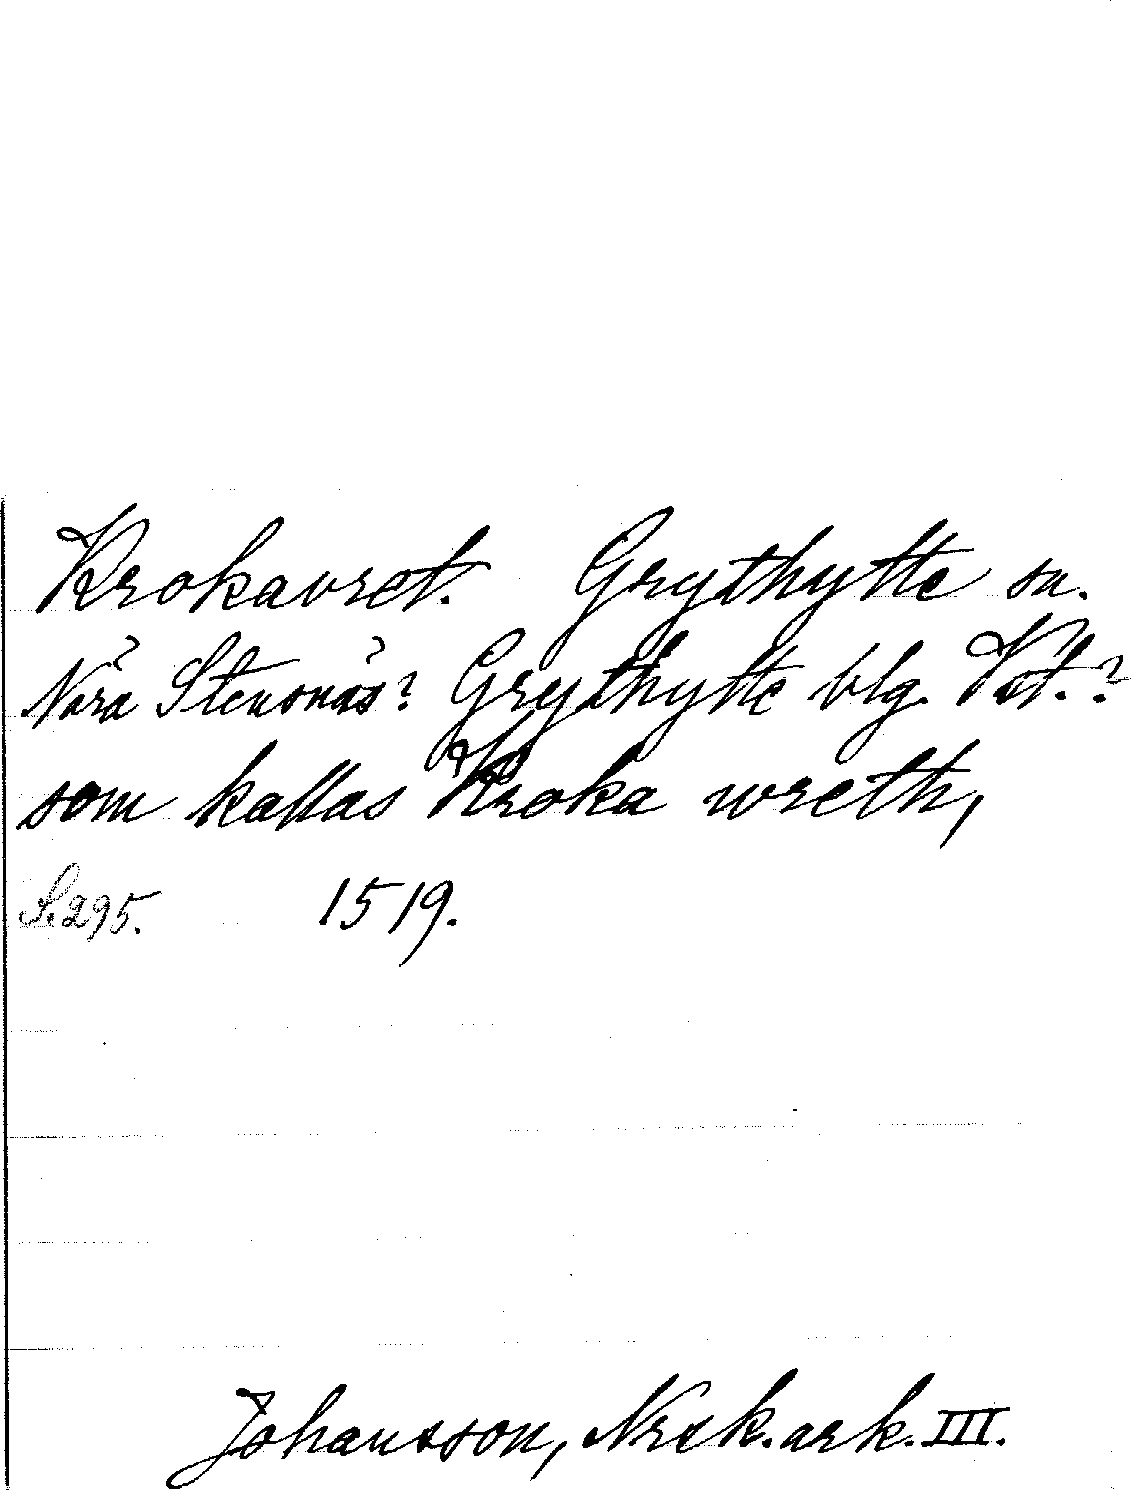 Krokavret. Grythytte sn.
Nära Stensnäs? Grythytte blg. Vstl.?
som kallas Kroka wreth,
S. 295. 1519.
Johansson, Nrsk. ark. III.